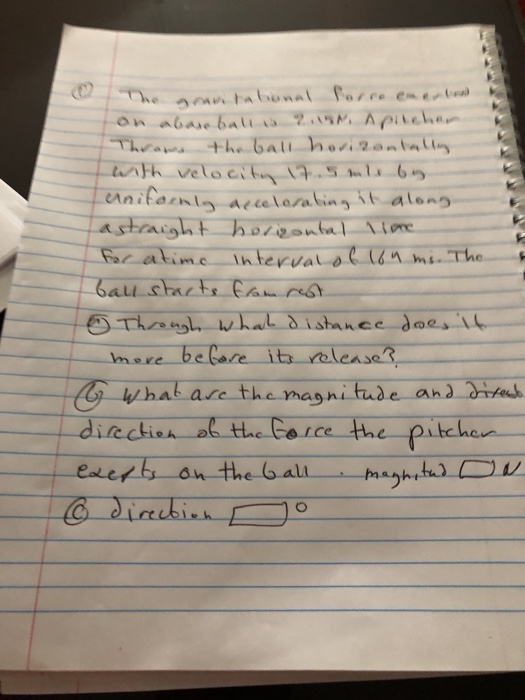 The gravitational force exerted
on a baseball is N. A pitcher
Throws the ball horizontally
with velocity 17.5 m/s by
uniformly accelerating it along
a straight horizontal line
For a time interval of ms. The
ball starts from rest
ⓐ Through what distance does it
move before its release?
ⓑ what are the magnitude and
direction of the force the pitcher
exerts on the ball. magnitud N
ⓒ direction °